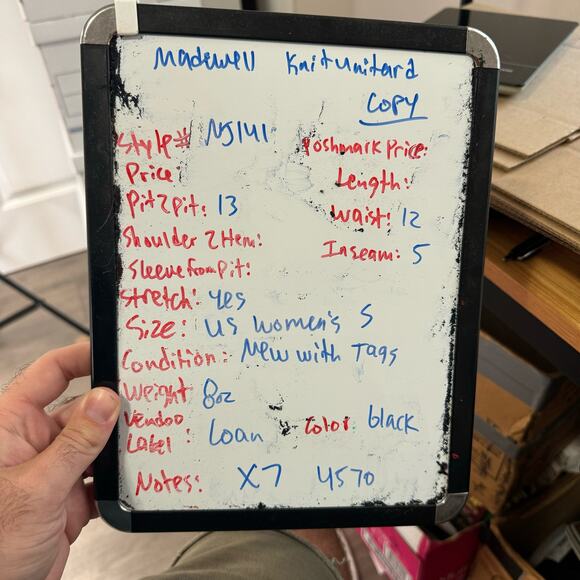 Madewell Knit Unitard
COPY
Style# NJ141 Poshmark Price:
Price Length:
Pit2Pit: 13 Waist: 12
Shoulder 2 Hem: Inseam: 5
Sleeve from Pit:
Stretch: yes
Size: US Women's S
Condition: New with Tags
Weight 8oz
Vendoo Label: Loan Color black
Notes: X7 4570